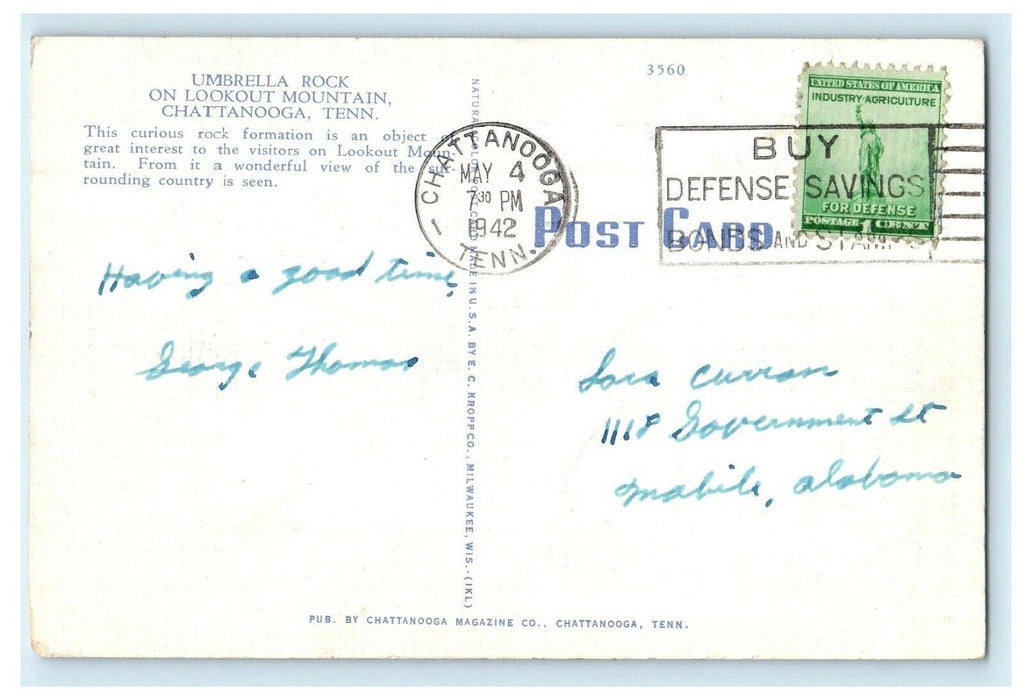 UMBRELLA ROCK
ON LOOKOUT MOUNTAIN,
CHATTANOOGA, TENN.
This curious rock formation is an object o
great interest to the visitors on Lookout Moun-
tain. From it a wonderful view of the sur-
rounding country is seen.
Having a good time,
George Thomas
NATURAL COLOR POST CARD MADE IN U.S.A. BY E. C. KROPP CO., MILWAUKEE, WIS.-(IKL)
3560
CHATTANOOGA
MAY 4
7 30 PM
1942
TENN.
POST CARD
BUY
DEFENSE SAVINGS
BONDS AND STAMPS
UNITED STATES OF AMERICA
INDUSTRY·AGRICULTURE
FOR DEFENSE
POSTAGE 1 CENT
Curran
1118 Government St
Mobile, Alabama
PUB. BY CHATTANOOGA MAGAZINE CO., CHATTANOOGA, TENN.